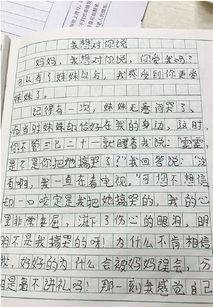 我想对你说
妈妈,我想对你说,你爱我吗?
自从有了妹妹以后,我感受到你更爱
妹妹了。
记得有一次,妹妹无意间哭了,
而当时妹妹的恰好在我的身边,这时,
你不管三七二十一就瞪着我说:“
是不是你把她搞哭了?”我回答说:“没
有啊,我一直在看电视。”可您不想信
一口咬定是我把她搞哭的,我的心
里非常委屈,滴下了伤心的眼泪,明明
不是我搞哭的呀!为什么不肯相信
我,好好的为什么会被妈妈误会,分
自是看不讲礼吗!那一刻我感觉自己